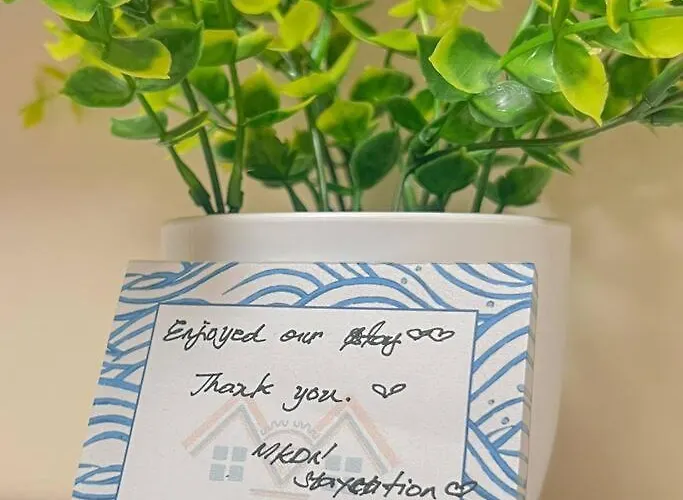 Enjoyed our stay ♡♡
Thank you. ♡
MKDN
Staycation ♡